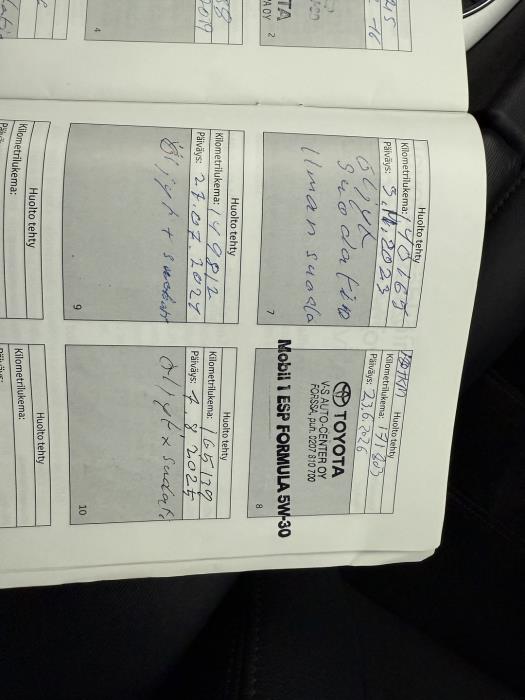 4
2
Huolto tehty
Kilometrilukema: 140165
Päiväys: 9.11.2023
Öljyt
suodatin
Ilman suoda
7
Huolto tehty
Kilometrilukema: 171803
Päiväys: 23.6.2026
TOYOTA
V-S AUTO-CENTER OY
FORSSA, puh. 0207 810 700
Mobil 1 ESP FORMULA 5W-30
8
Huolto tehty
Kilometrilukema: 149812
Päiväys: 27.07.2024
Öljyt + suodat
9
Huolto tehty
Kilometrilukema: 165179
Päiväys: 1.8.2025
Öljyt + suodati
10
Huolto tehty
Kilometrilukema:
Huolto tehty
Kilometrilukema: